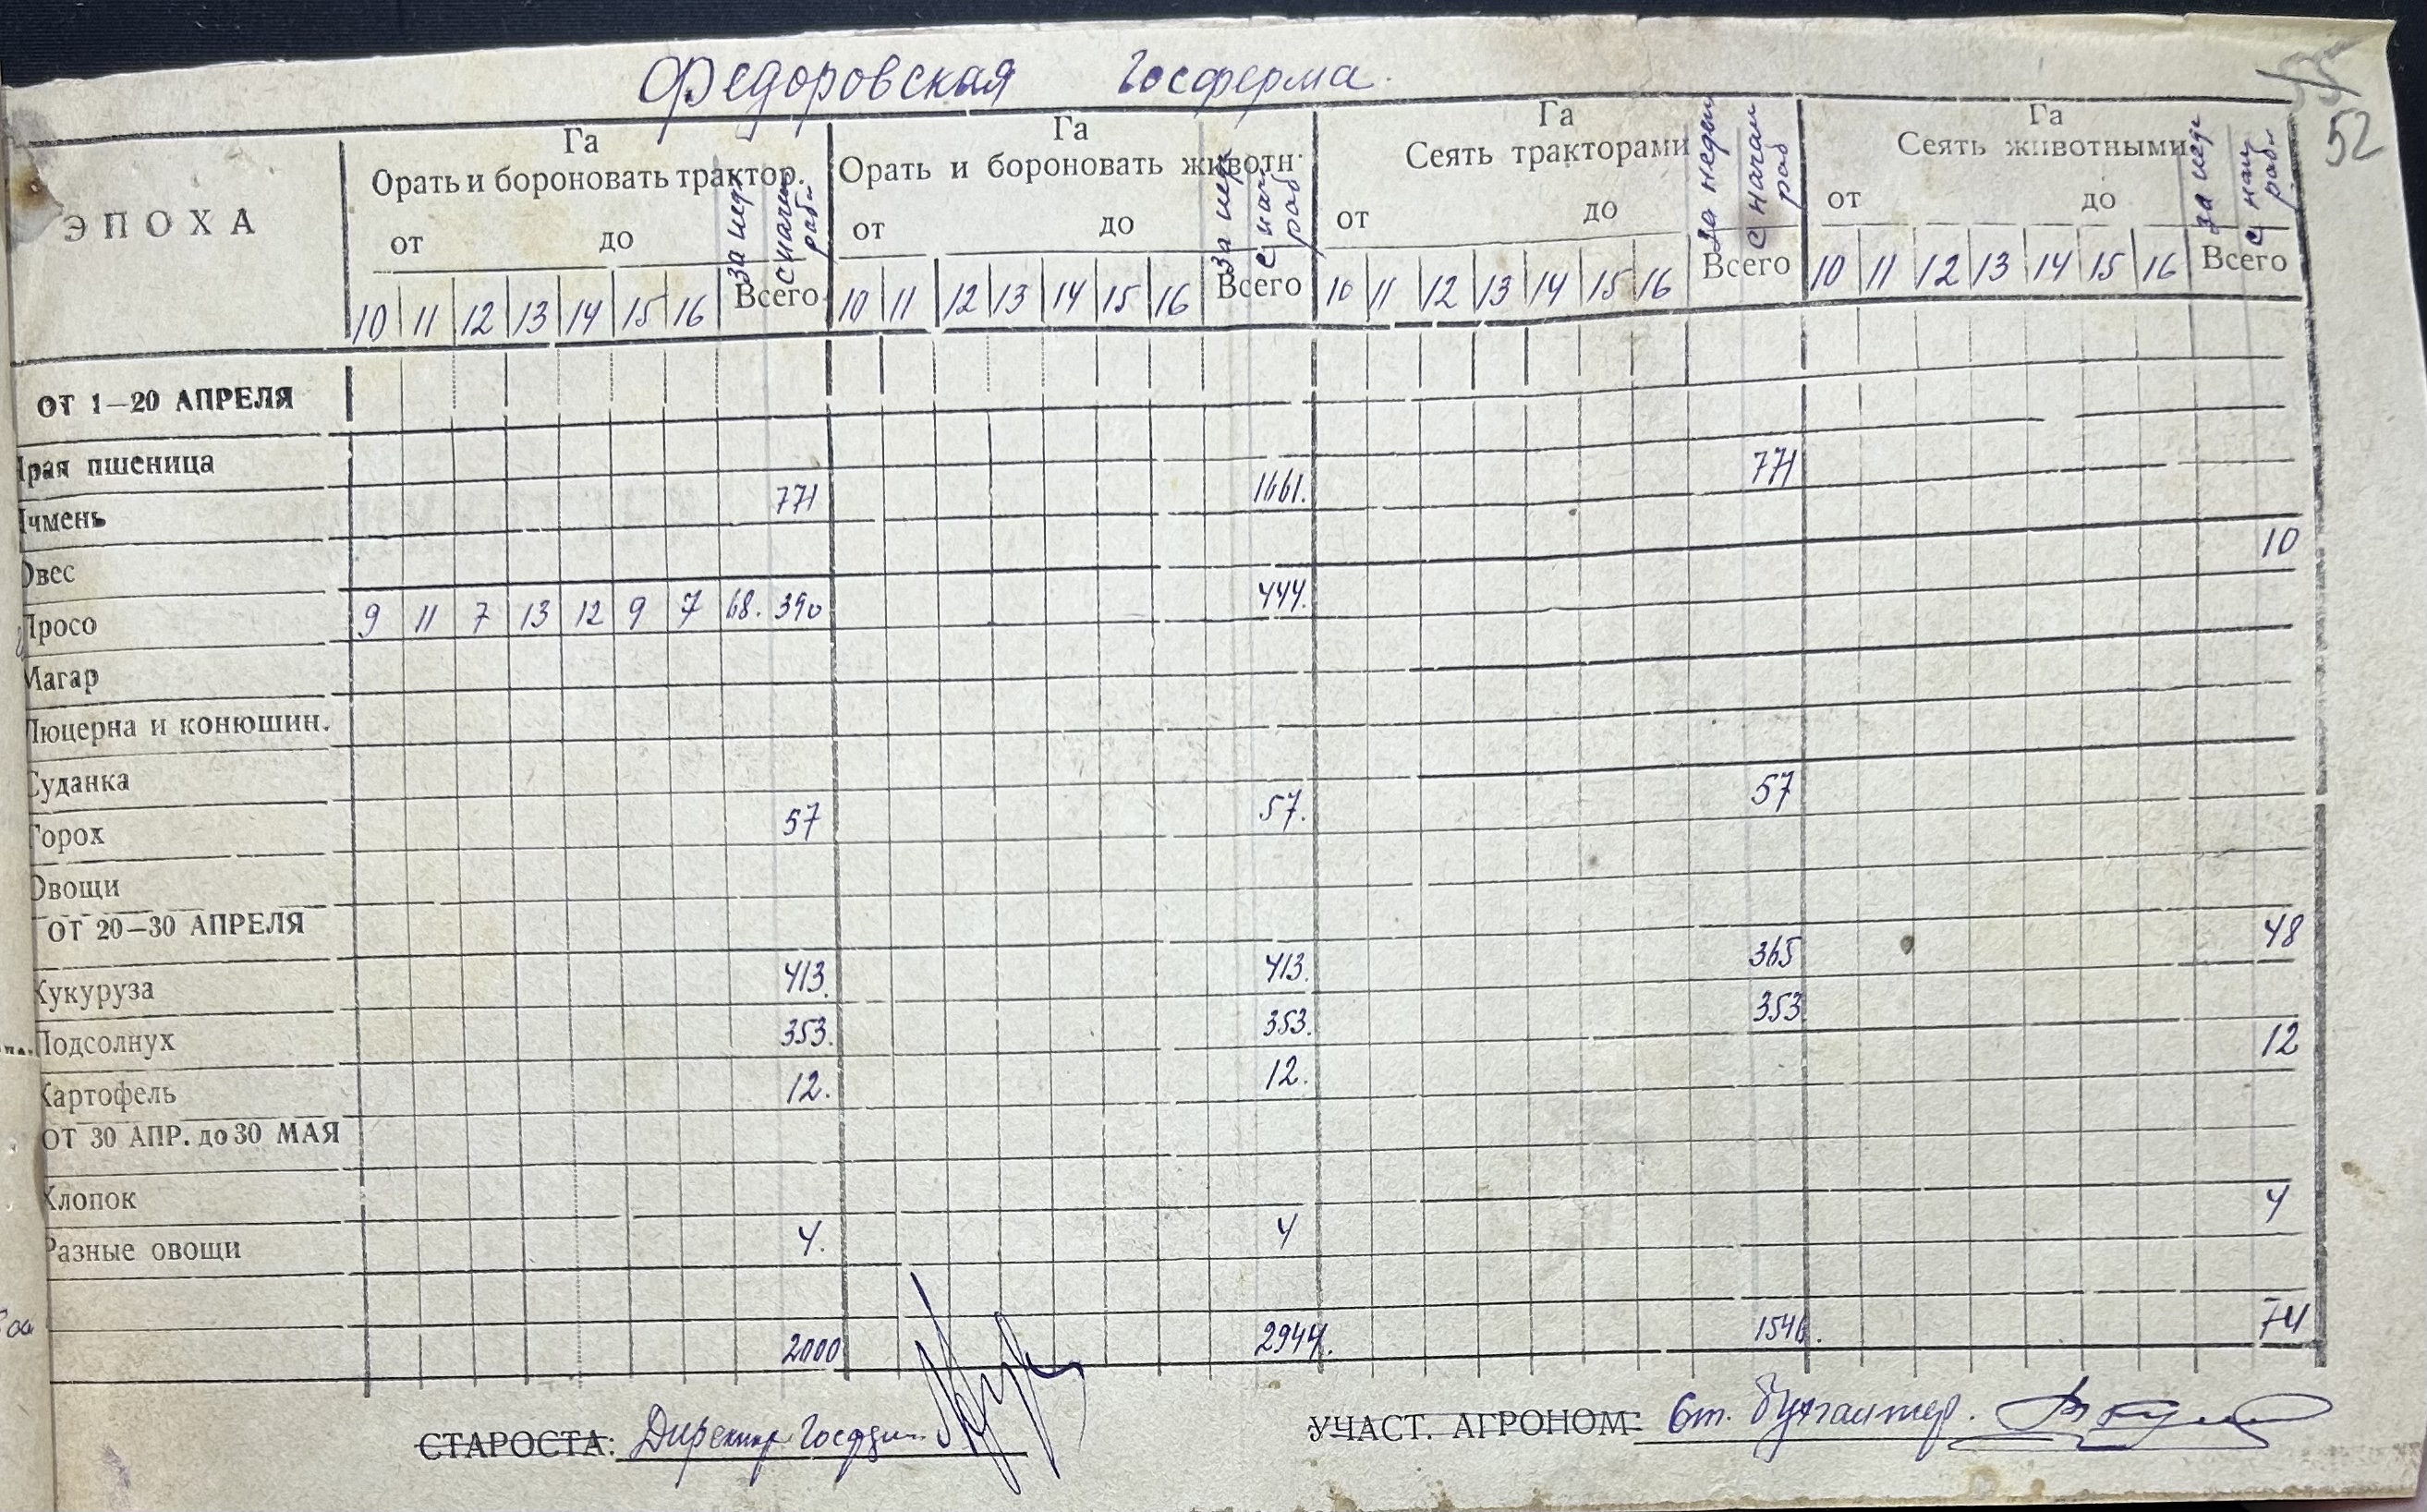 Федоровская Госферма.
52
ЭПОХА
Га Га Га Га
Орать и бороновать трактор. Орать и бороновать животн. Сеять тракторами Сеять животными
от до за нед. с начала раб. от до за нед. с нач. раб от до за неделю с начал раб от до за нед с нач раб.
10 11 12 13 14 15 16 Всего 10 11 12 13 14 15 16 Всего 10 11 12 13 14 15 16 Всего 10 11 12 13 14 15 16 Всего
ОТ 1—20 АПРЕЛЯ
Ярая пшеница
Ячмень 771 1661. 771
Овес 10
Просо 9 11 7 13 12 9 7 68. 390 444.
Магар
Люцерна и конюшин.
Суданка
Горох 57 57. 57
Овощи
ОТ 20—30 АПРЕЛЯ
Кукуруза 413. 413. 365 48
Подсолнух 353. 353. 353
Картофель 12. 12. 12
ОТ 30 АПР. до 30 МАЯ
Хлопок
Разные овощи 4. 4 4
2000 2944. 1546. 74
СТАРОСТА: Директор Госфер. УЧАСТ. АГРОНОМ: Ст. бухгалтер.